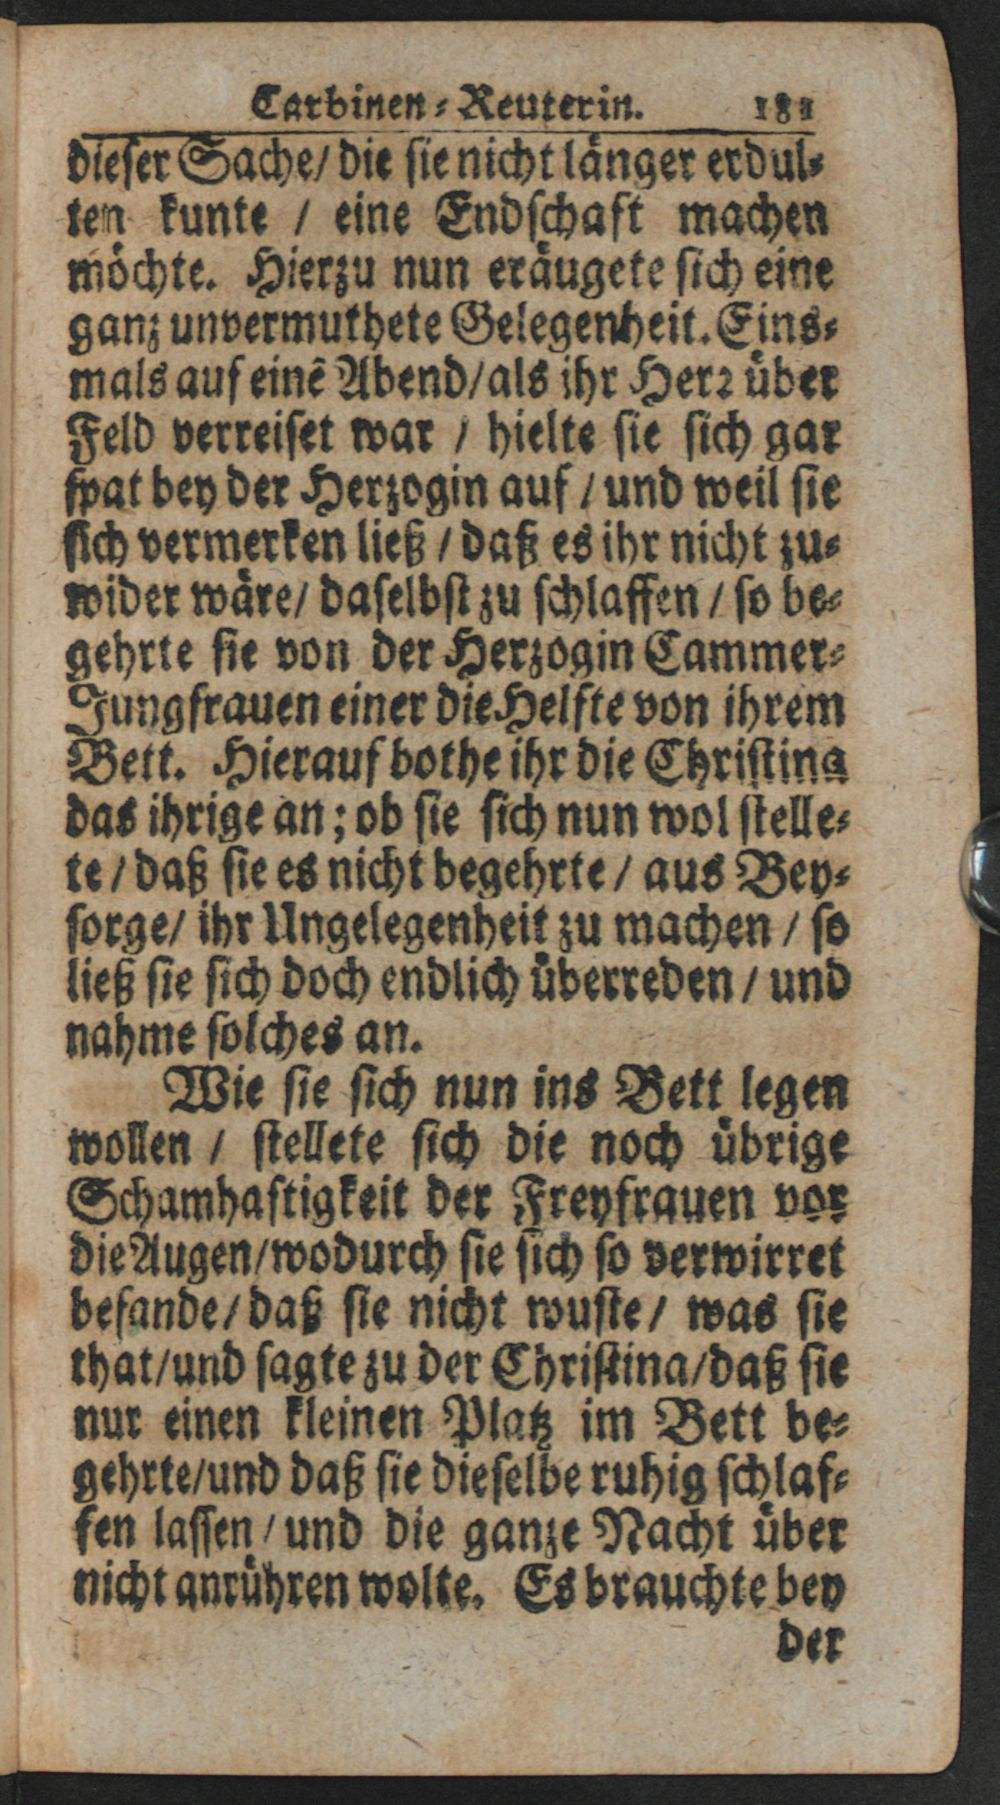 Carbinen⸗Reuterin. 181
dieſer Sache/ die ſie nicht länger erdul⸗
ten kunte / eine Endſchaft machen
möchte. Hierzu nun eräugete ſich eine
ganz unvermuthete Gelegenheit. Eins⸗
mals auf einē Abend/als ihr Herꝛ über
Feld verreiſet war / hielte ſie ſich gar
ſpat bey der Herzogin auf / und weil ſie
ſich vermerken ließ / daß es ihr nicht zu⸗
wider wäre/ daſelbſt zu ſchlaffen / ſo be⸗
gehrte ſie von der Herzogin Cammer⸗
Jungfrauen einer die Helfte von ihrem
Bett. Hierauf bothe ihr die Chriſtina
das ihrige an; ob ſie ſich nun wol ſtelle⸗
te / daß ſie es nicht begehrte / aus Bey⸗
ſorge/ ihr Ungelegenheit zu machen / ſo
ließ ſie ſich doch endlich überreden / und
nahme ſolches an.
Wie ſie ſich nun ins Bett legen
wollen / ſtellete ſich die noch übrige
Schamhaftigkeit der Freyfrauen vor
die Augen/wodurch ſie ſich ſo verwirret
befande/ daß ſie nicht wuſte/ was ſie
that/und ſagte zu der Chriſtina/daß ſie
nur einen kleinen Platz im Bett be⸗
gehrte/und daß ſie dieſelbe ruhig ſchlaf⸗
fen laſſen / und die ganze Nacht über
nicht anrühren wolte. Es brauchte bey
der